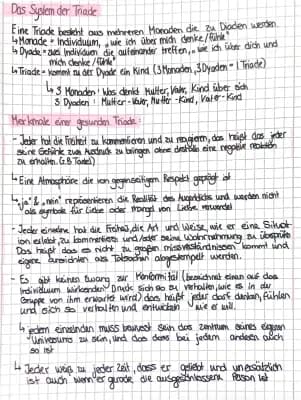 Das System der Triade
Eine Triade besteht aus mehreren Monaden die zu Dyaden werden
↳ Monade = Individuum, „wie ich über mich denke/fühle"
↳ Dyade = zwei Individuen die aufeinander treffen, „wie ich über dich und
mich denke/fühle"
↳ Triade = kommt zu der Dyade ein Kind (3 Monaden, 3 Dyaden = 1 Triade)
↳ 3 Monaden: Was denkt Mutter, Vater, Kind über sich
3 Dyaden: Mutter-Vater, Mutter-Kind, Vater-Kind
Merkmale einer gesunden Triade:
- Jeder hat die Freiheit zu kommentieren und zu reagieren, das heißt das jeder
seine Gefühle zum Ausdruck zu bringen ohne deshalb eine negative Reaktion
zu erhalten. (z.B. Tadel)
↳ Eine Atmosphäre die von gegenseitigem Respekt geprägt ist
↳ „ja" & „nein" repräsentieren die Realität des Augenblicks und werden nicht
als Symbole für Liebe oder Mangel von Liebe verwendet
- Jeder einzelne hat die Freiheit, die Art und Weise, wie er eine Situat-
ion erlebt, zu kommentieren und/oder seine Wahrnehmung zu überprüfen
Das heißt das es nicht zu großen Missverständnissen kommt und
eigene Ansichten als Tatsachen abgestempelt werden.
- Es gibt keinen Zwang zur Konformität (bezeichnet einen auf das
Individuum wirkenden Druck sich so zu verhalten, wie es in der
Gruppe von ihm erwartet wird) das heißt jeder darf denken, fühlen
und sich so verhalten und entwickeln wie er will.
↳ jedem einzelnen muss bewusst sein das Zentrum eines eigenen
Universums zu sein, und das dies bei jedem anderen auch
so ist
↳ Jeder weiß zu jeder Zeit, dass er geliebt und unersätzlich
ist auch wenn er gerade die ausgeschlossene Person ist